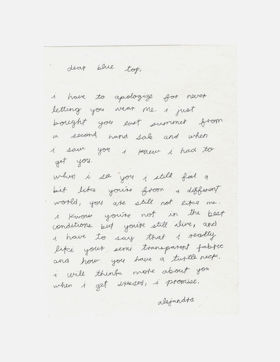 dear blue top,
i have to apologize for never
letting you wear me. i just
bought you last summer from
a second hand sale and when
i saw you i knew i had to
get you.
when i see you i still feel a
bit like you're from a different
world, you are still not like me.
i know you're not in the best
conditions but you're still alive, and
i have to say that i really
like your semi transparent fabric
and how you have a turtle neck.
i will think more about you
when i get dressed, i promise.
alejandra